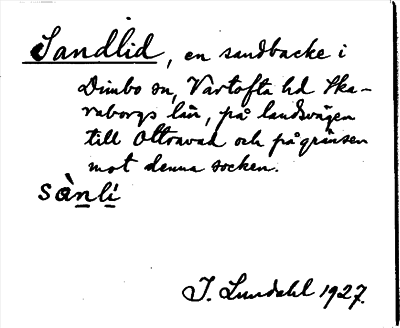 Sandlid, en sandbacke i
Dimbo sn, Vartofta hd Ska-
raborgs län, på landsvägen
till Ottravad och på gränsen
mot denna socken.
sànlí
J. Lundahl 1927.